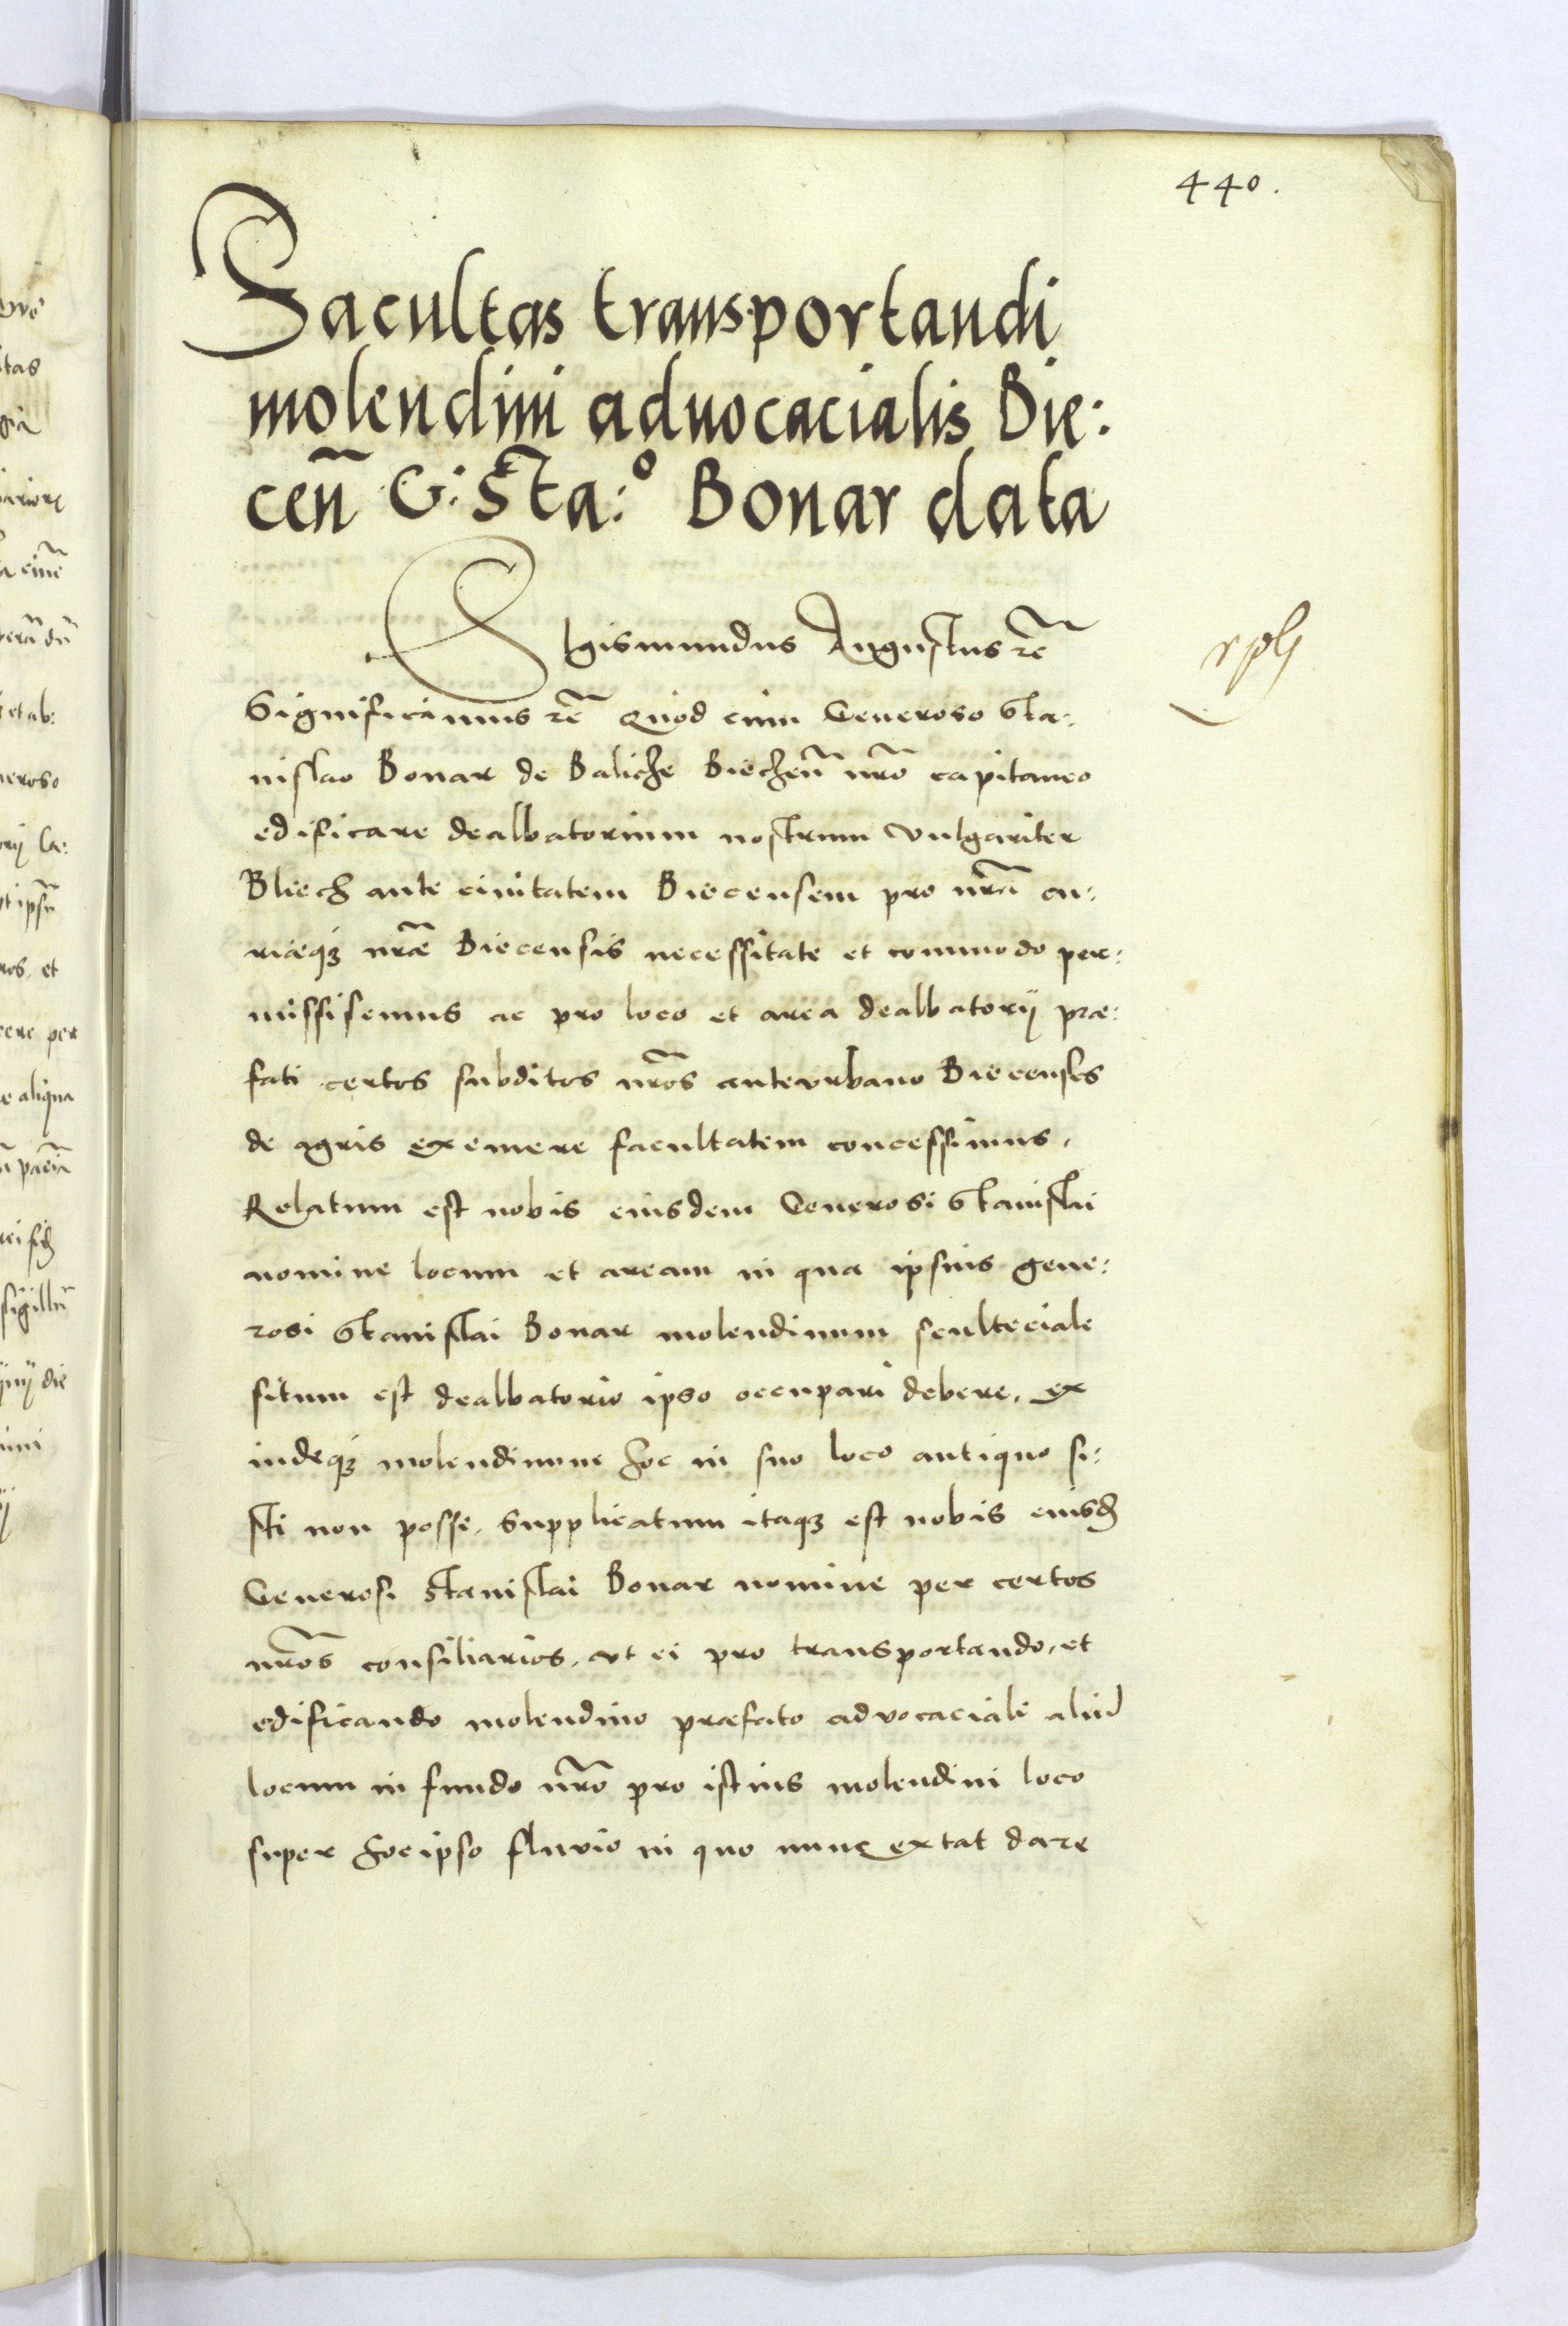 440.
Facultas transportandi
molendini aduocacialis Bie:
ceñ G: Sta:º Bonar data
Sigismundus Augustus rc̃
Significamus rc̃ Quod cum Generoso Sta:
nislao Bonar de Baliche Biecheñ nrõ capitaneo
edificare dealbatorium nostrum vulgariter
Bliech ante ciuitatem Biecensem pro nrã cu:
riæq3 nræ̃ Biecensis necessitate et commodo per:
missisemus ac pro loco et area dealbatorÿ præ:
fati certos subditos nrõs anteurbano Biecenses
de agris exemere facultatem concessimus,
Relatum est nobis eiusdem Generosi Stanislai
nomine locum et aream in qua ipsius gene:
rosi Stanislai Bonar molendinum sculteciale
situm est dealbatorio ipso occupari debere, ex
indeq3 molendinum hoc in suo loco antiquo si:
sti non posse, Supplicatum itaq3 est nobis eiusd
Generosi Stanislai Bonar nomine per certos
nrõs consiliarios, vt ei pro transportando, et
edificando molendino præfato advocaciali aliud
locum in fundo nrõ pro istius molendini loco
super hoc ipso fluvio in quo nunc extat dare